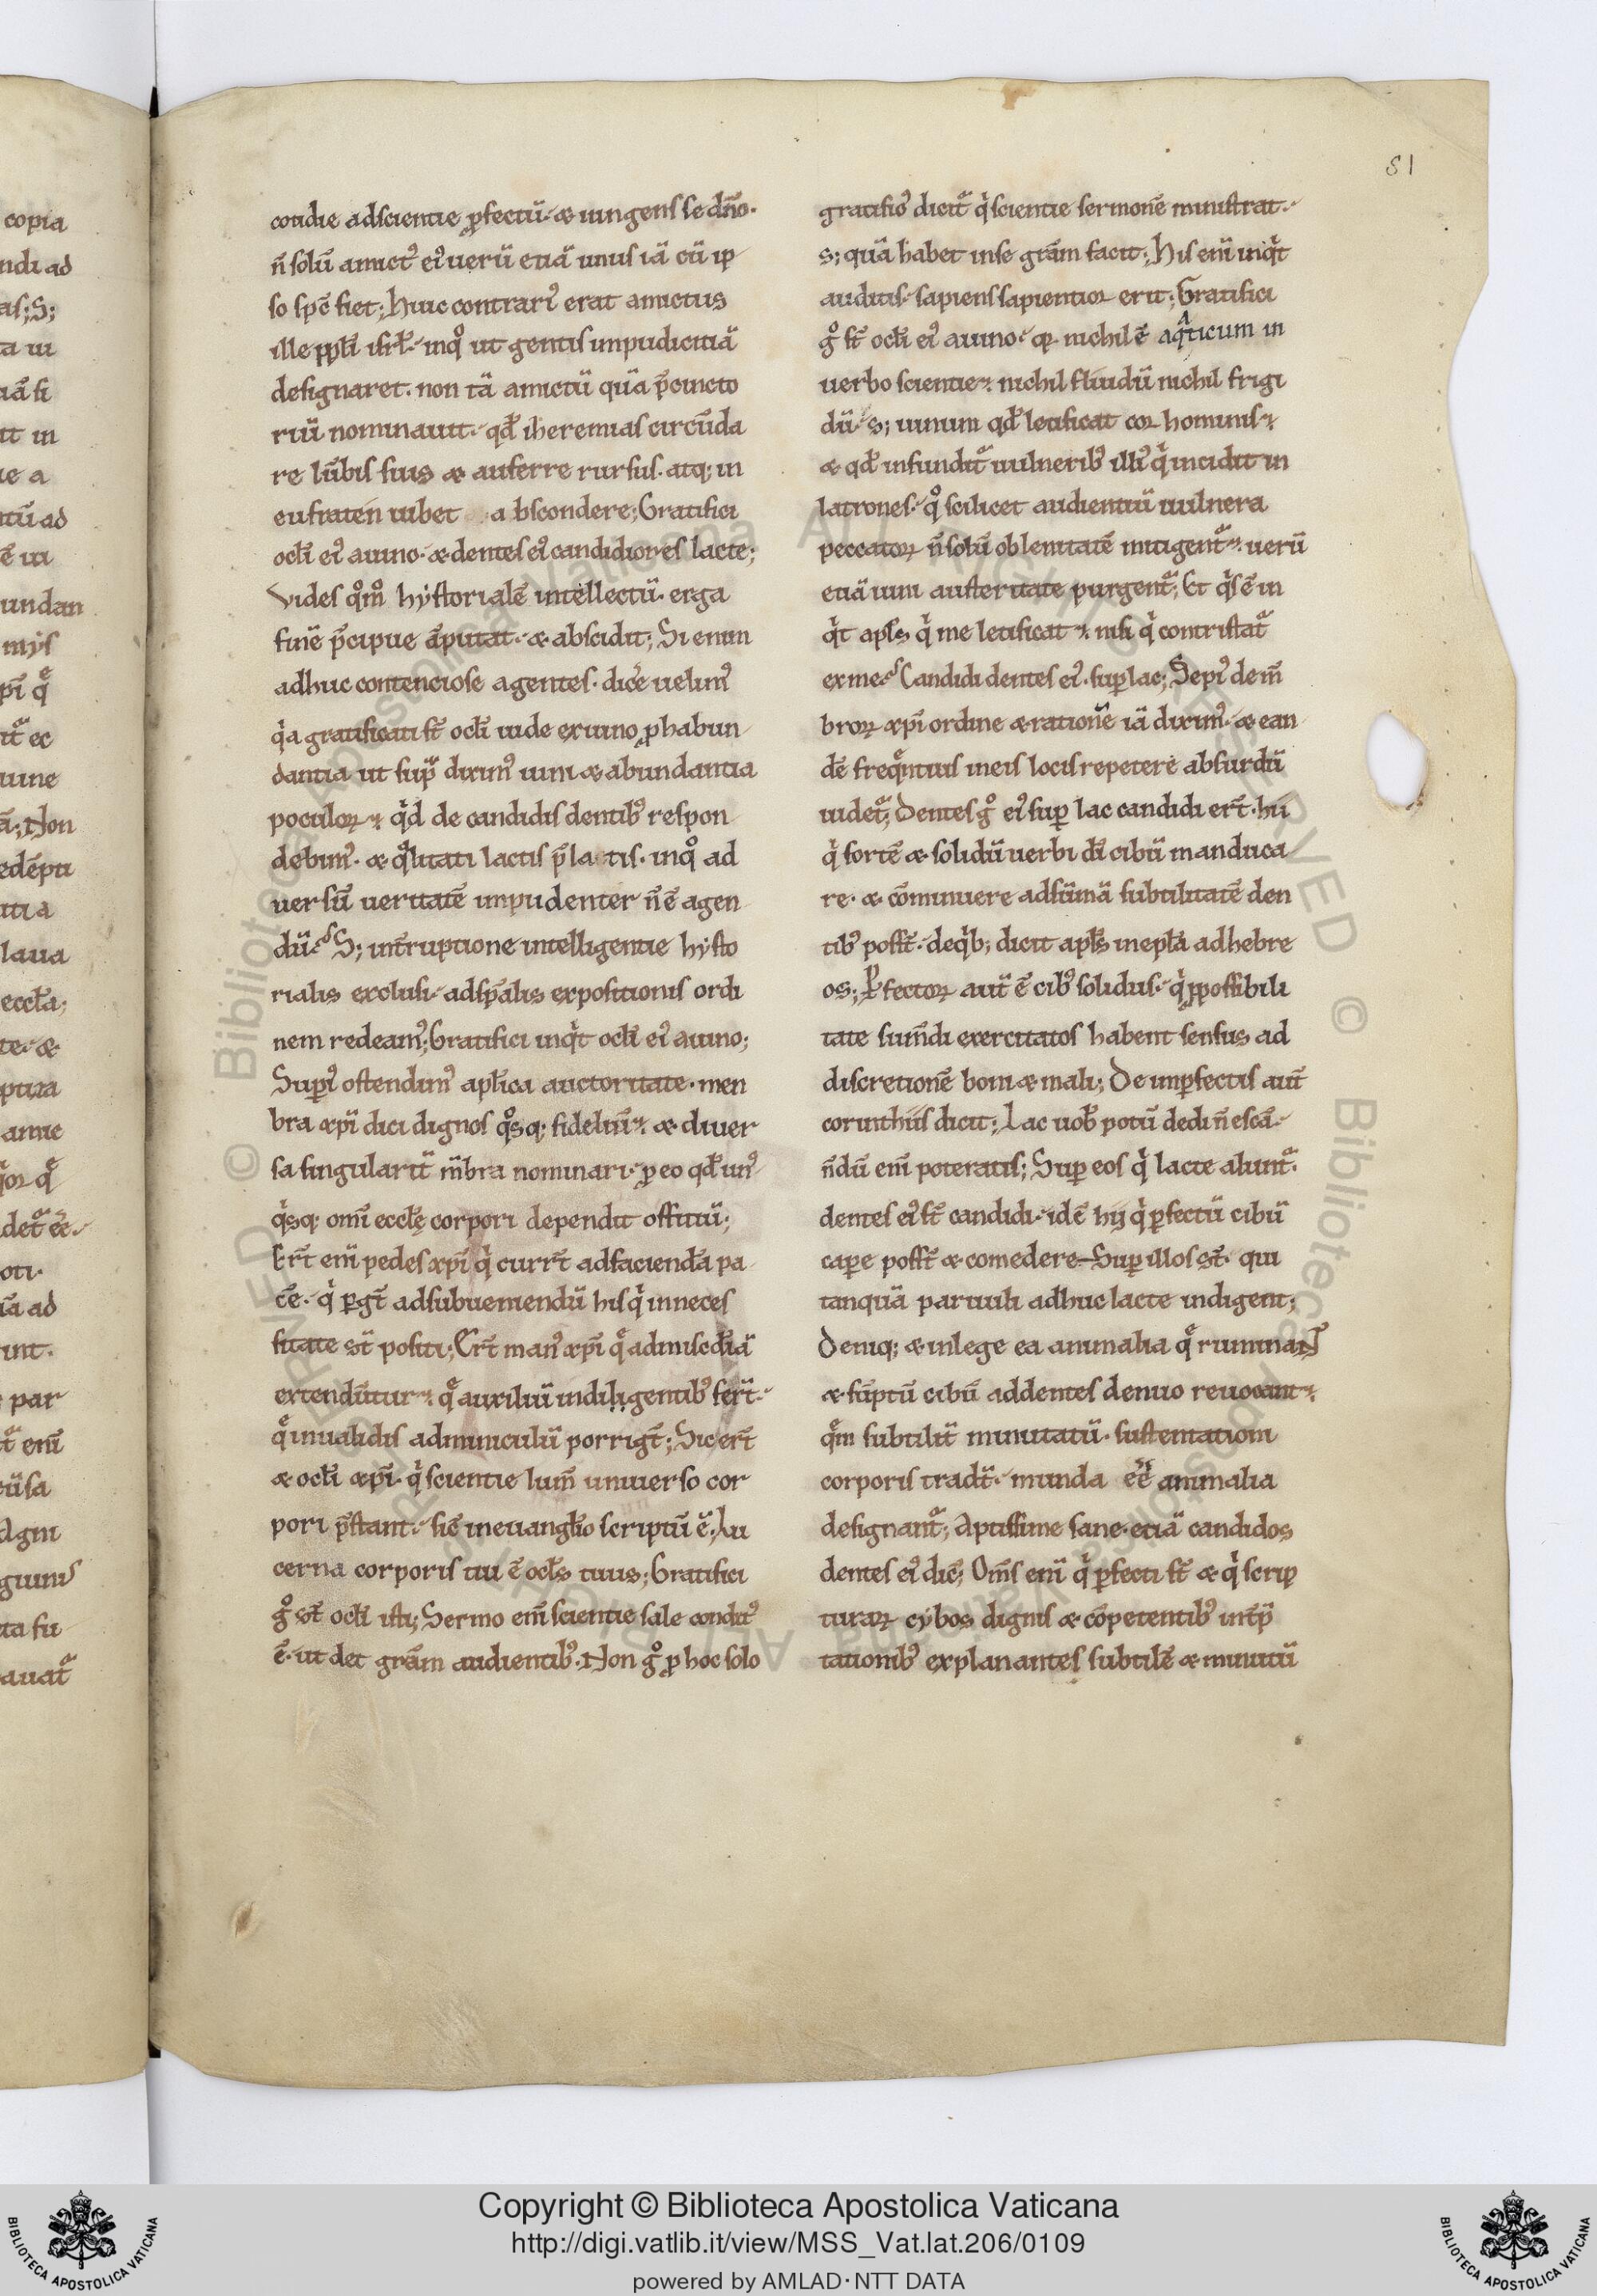 81
copia
ndi ad
cotidie adscientie ꝓfectū· & iungens se dn̄o·
n̄ solū amictꝰ eiꝰ uerū etiā unus iā cū ip
so sp̄c fiet; Huic contrariꝰ erat amictus
ille ppl̄i isrl̄· inqͦ ut gentis impudicitiā
designaret· non tā amictū quā p̄cincto
riū nominauit· qđ iheremias circūda
re lūbis suis & auferre rursus· atq; in
eufraten iubet abscondere; Gratifici
ocl̄i eiꝰ auino· & dentes eiꝰ candidiores lacte;
Vides qͦm̊ hẏstorialē intellectū· erga
finē p̄cipue āputat· & abscidit; Si enim
adhuc contenciose agentes· dic̄e uelimꝰ
qͥa gratificati st̄ ocl̄i iude exuino ꝓ habun
dantia ut supͣ diximꝰ uini & abundantia
poculoꝝ· qͥd de candidis dentibꝰ respon
debimꝰ· & qͣlitati lactis p̄latis· inqͦ ad
uersū ueritatē impudenter n̄ ē agen
dū S; int̄ruptione intelligentie hẏsto
rialis exclusi· adsp̄alis expositionis ordi
nem redeamꝰ; Gratifici inqͥt ocl̄i eiꝰ auino;
Superiꝰ ostendimꝰ apl̄ica auctoritate· men
bra xp̄i dici dignos qͦsq; fideliū· & diuer
sa singularit̄ m̄bra nominari· ꝓ eo qđ unꝰ
qͥsq; omī eccl̄ę corpori dependit offitiū;
Ert̄ enī pedes xp̄i qͥ curr̄t adfaciendā pa
cē· qͥ ꝑgt̄ adsubueniendū his qͥ inneces
sitate st̄ positi; Ert̄ manꝰ xp̄i qͤ admisedͥā
extendūtur· qͤ auxiliū indiligentibꝰ fert̄·
qͤ inualidis adminiculū porrigt̄; Sic ert̄
& ocl̄i xp̄i· qͥ scientie lum̄ uniuerso cor
pori p̄stant· sic̄ ineuangl̄io scriptū ē; Lu
cerna corporis tui ē ocl̄s tuus; Gratifici
gͦ st̄ ocl̄i isti; Sermo enī scientie sale conditꝰ
ē· ut det grām audientibꝰ· Non gͦ ꝓ hoc solo
gratifiꝰ dicit̄ qͥ scientie sermonē ministrat·
s; quā habet inse grām facit; His enī inqͥt
auditis· sapiens sapientior erit; Gratifici
gͦ st̄ ocl̄i eiꝰ auino· qꝛ nichil ē aqͣticum in
uerbo scientie· nichil fluidū nichil frigi
dū· s; uinum qđ letificat cor hominis·
& qđ infundit̄ uulneribꝰ illiꝰ qͥ incidit in
latrones· qͦ scilicet audientiū uulnera
peccatoꝝ n̄ solū ob lenitatē mitigent̄· uerū
etiā uini austeritate purgent̄; Et qͥs ē in
qͥt apl̄s qͥ me letificat· nisi qͥ contristat̄
ex me Candidi dentes eiꝰ· suꝑ lac; Sepiꝰ de m̄
broꝝ xp̄i ordine & rationē iā diximꝰ· & ean
dē freqͤntius ineis locis repetere absurdū
uidet̄; Dentes gͦ eiꝰ suꝑ lac candidi ert̄· hii
qͥ fortē & solidū uerbi dī cibū manduca
re· & cōminuere adsūmā subtilitatē den
tibꝰ posst̄· deqͥb; dicit apl̄s inepl̄a adhebre
os; Ꝑfectoꝝ aut̄ ē cibꝰ solidus· qͥ ꝓpossibili
tate sum̄di exercitatos habent sensus ad
discretionē boni & mali; De imꝑfectis aut̄
corinthiis dicit; Lac uob̄ potū dedi n̄ escā·
n̄dū enī poteratis; Suꝑ eos qͥ lacte alunt̄·
dentes eiꝰ st̄ candidi· idē hij qͥ ꝑfectū cibū
caꝑe posst̄ & comedere Suꝑ illos st̄· qui
tanquā paruuli adhuc lacte indigent;
Deniq; & inlege ea animalia qͤ ruminant
& sūptū cibū addentes denuo reuocant·
qͤm subtilit̄ minutatū· sustentationi
corporis tradt̄· munda eē animalia
designant̄; Aptissime sane· etiā candidos
dentes eiꝰ dic̄; Om̄s enī qͥ ꝑfecti st̄ & qͥ scrip
turaꝝ cẏbos dignis & cōpetentibꝰ int̄p̄
tationibꝰ explanantes subtilē & minutū
© Biblioteca Apostolica Vaticana ALL RIGHTS RESERVED
Copyright © Biblioteca Apostolica Vaticana
http://digi.vatlib.it/view/MSS_Vat.lat.206/0109
powered by AMLAD·NTT DATA
BIBLIOTECA APOSTOLICA VATICANA
BIBLIOTECA APOSTOLICA VATICANA